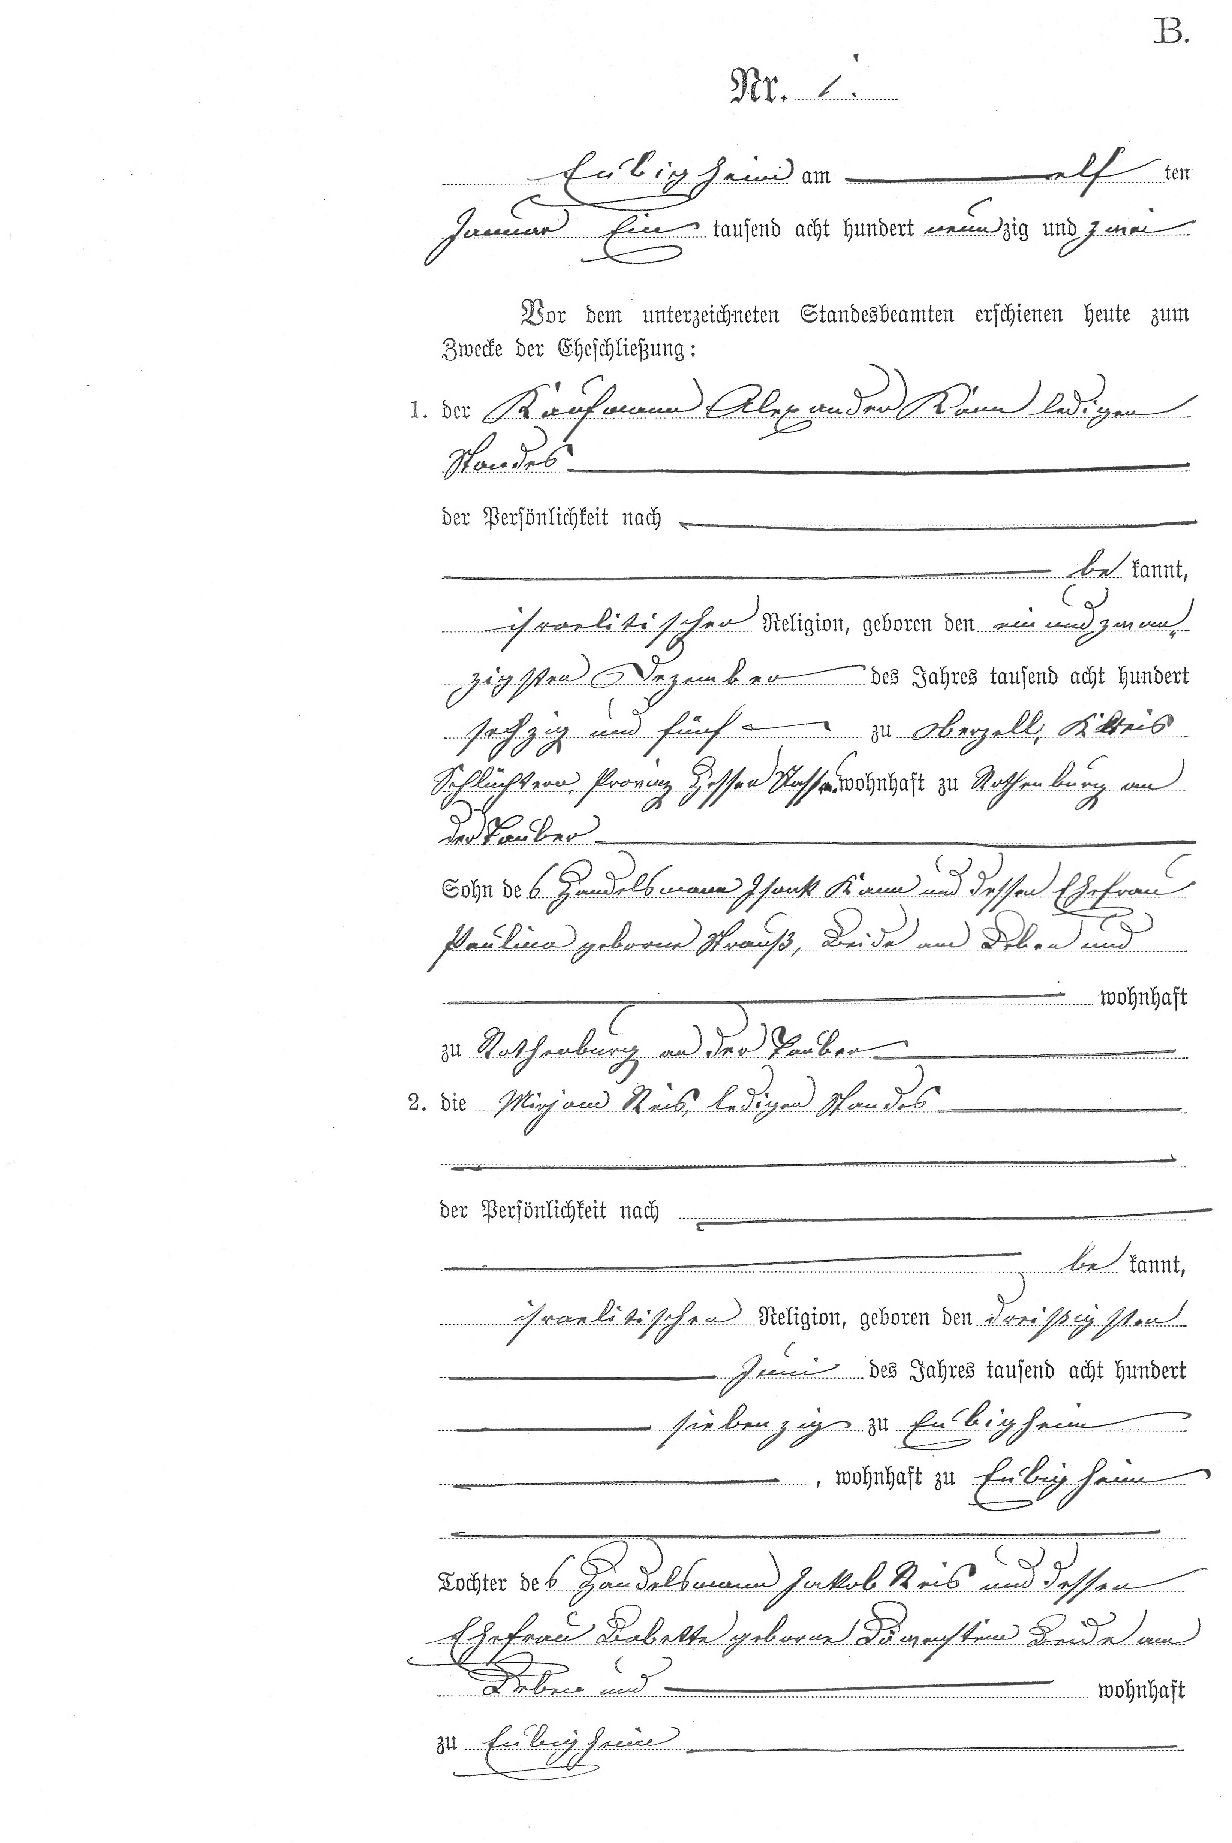 B.
Nr. 1.
Eubigheim am elf ten
Januar Ein tausend acht hundert neunzig und zwei
Vor dem unterzeichneten Standesbeamten erschienen heute zum
Zwecke der Eheschließung:
1. der Kaufmann Alexander Kann ledigen
Standes
der Persönlichkeit nach
be kannt,
israelitischer Religion, geboren den ein und zwan-
zigsten Dezember des Jahres tausend acht hundert
sechzig und fünf zu Oberzell, Kreis
Schlüchtern, Provinz Hessen Nassau wohnhaft zu Rothenburg an
der Tauber
Sohn des Handelsmann Isaak Kann und dessen Ehefrau
Paulina geborne Strauß, Beide am Leben und
wohnhaft
zu Rothenburg an der Tauber
2. die Mirjam Reis, ledigen Standes
der Persönlichkeit nach
be kannt,
israelitischen Religion, geboren den dreißigsten
Juni des Jahres tausend acht hundert
siebenzig zu Eubigheim
, wohnhaft zu Eubigheim
Tochter des Handelsmann Jakob Reis und dessen
Ehefrau Babette geborne Löwenstein Beide am
Leben und wohnhaft
zu Eubigheim